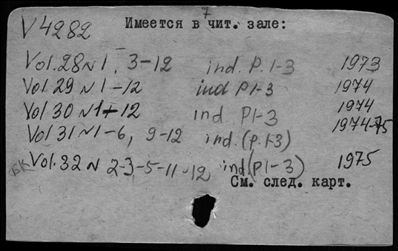 V4282 Имеется в чит. зале:
Vol. 28 N 1, 3-12 ind. P. 1-3 1973
Vol 29 N 1-12 ind P1-3 1974
Vol 30 N 1-12 ind P1-3 1974
Vol 31 N 1-6, 9-12 ind. (p. 1-3) 1974-75
БК Vol. 32 N 2-3-5-11-12 ind (P1-3) 1975
См. след. карт.